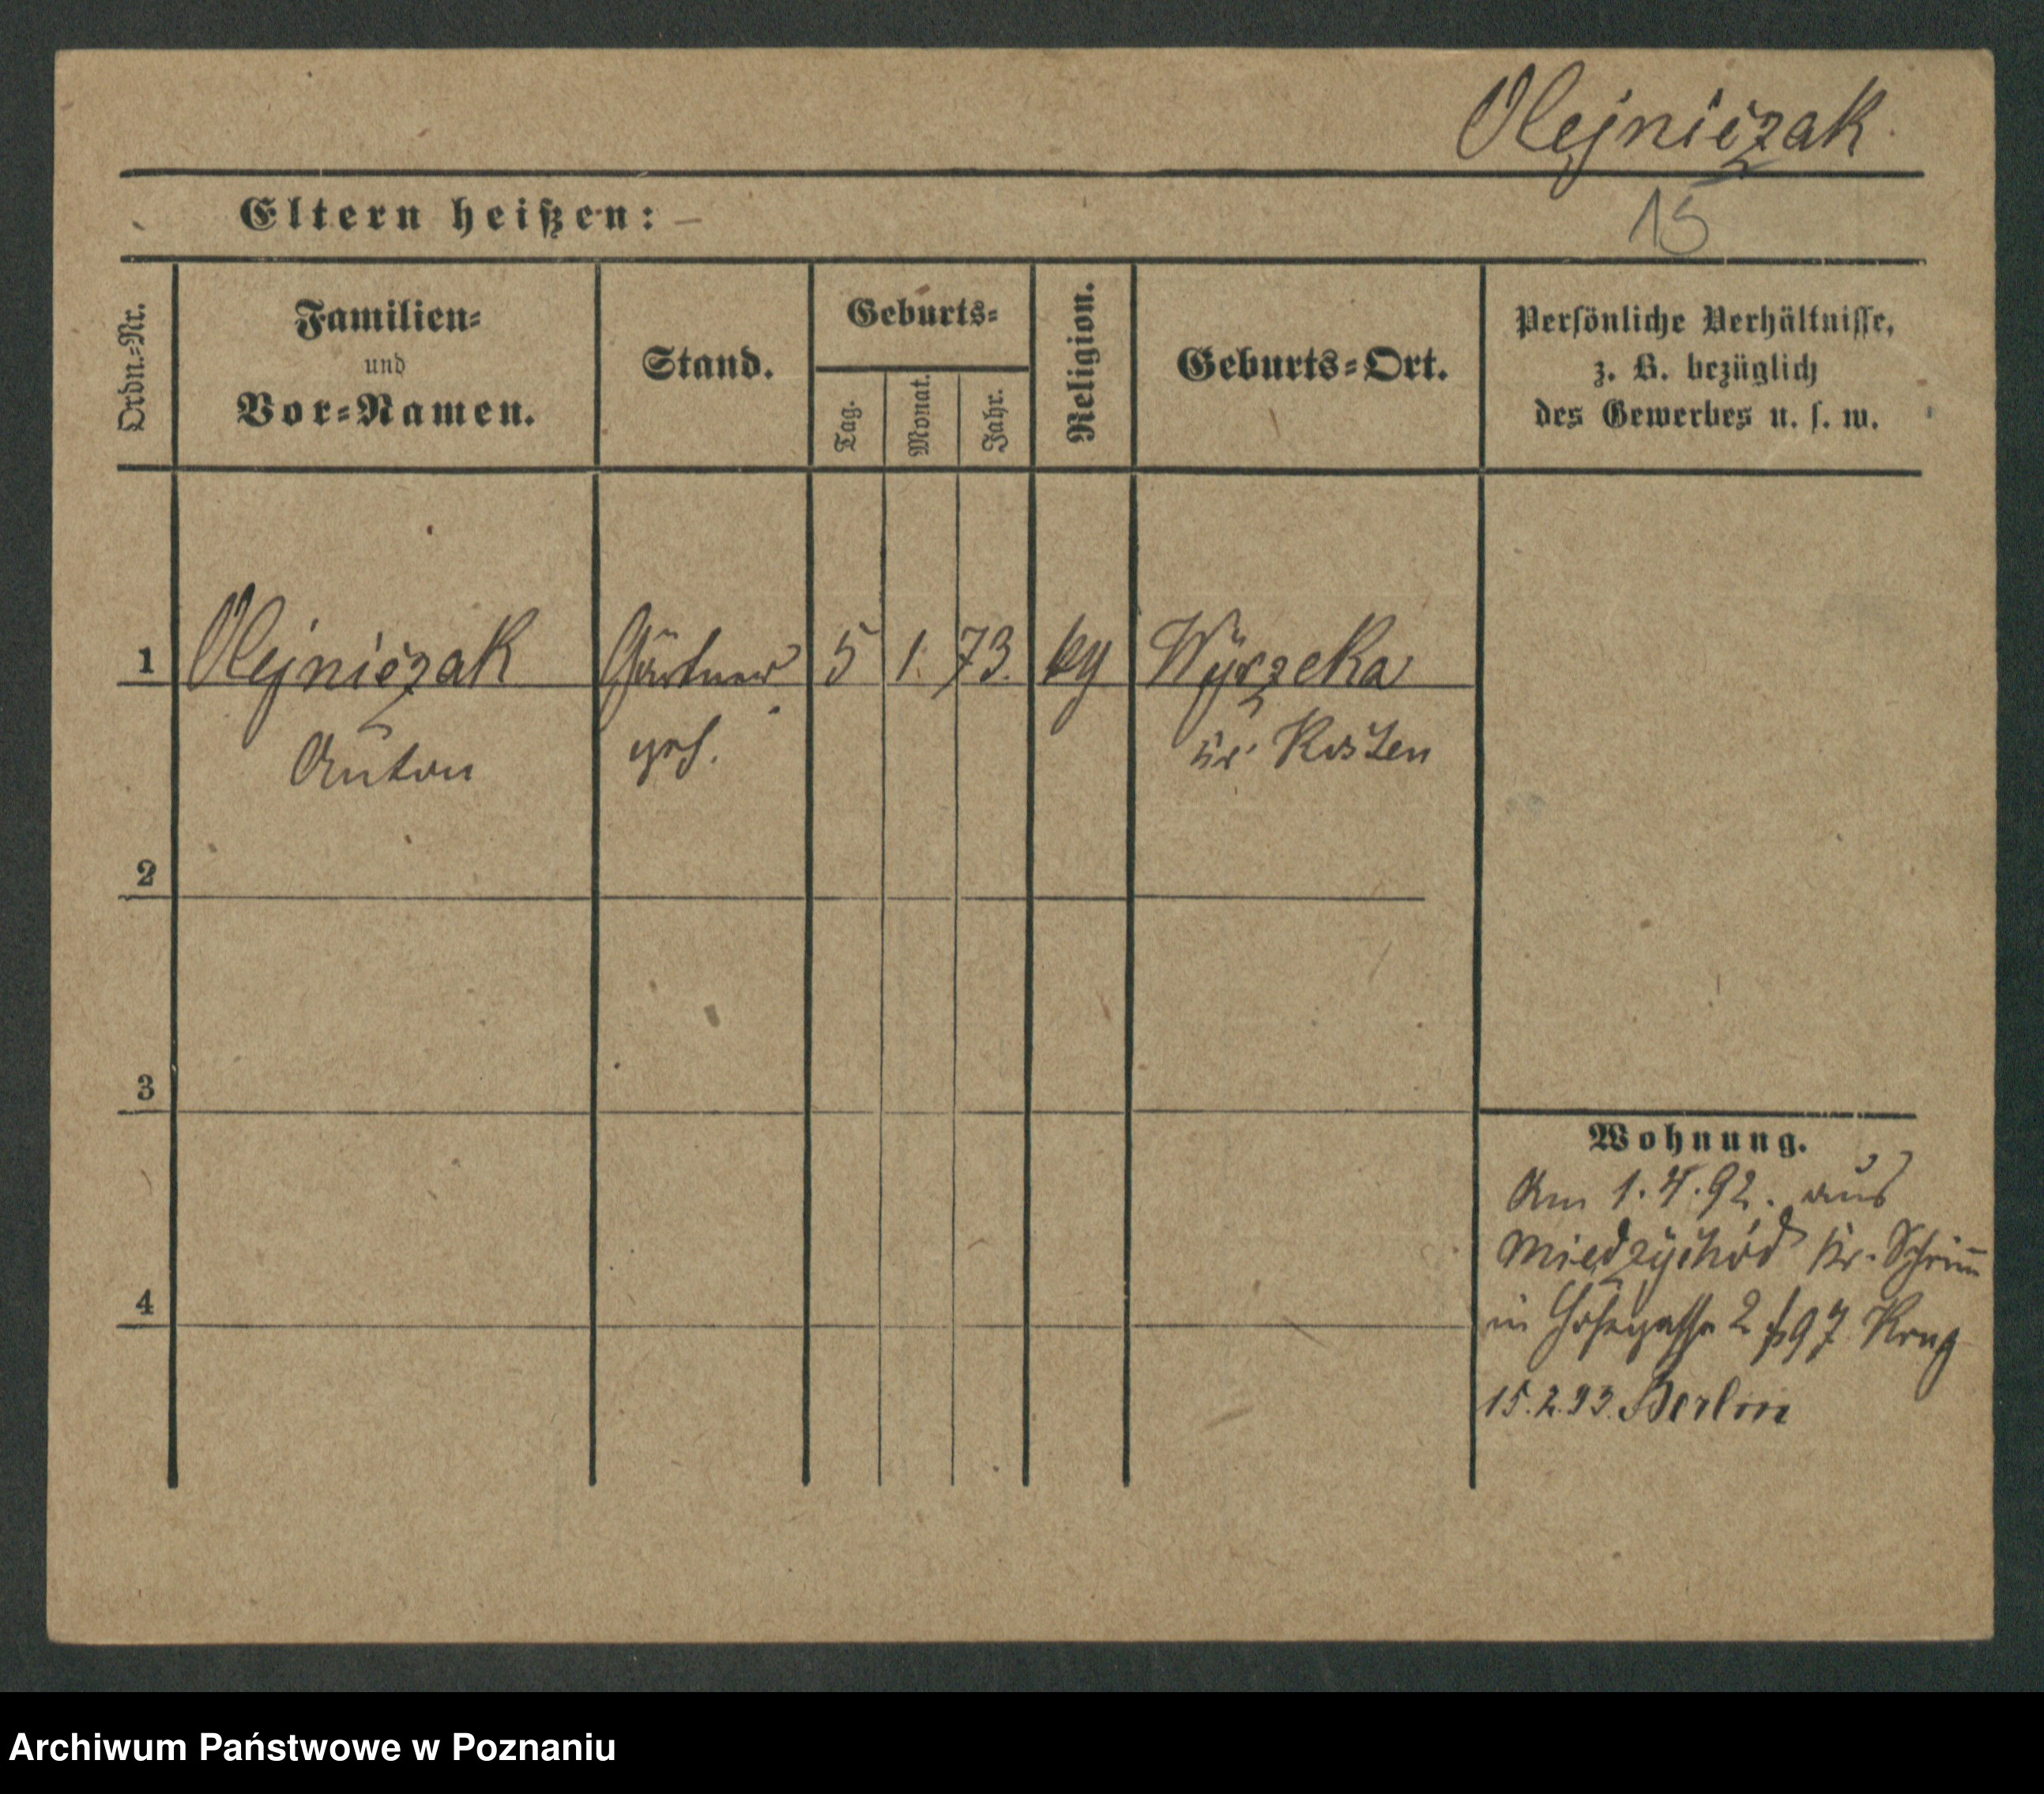 Olejniczak
Eltern heißen: –
15
Ordn.-Nr.
Familien-
und
Vor-Namen.
Stand.
Geburts-
Tag.
Monat.
Jahr.
Religion.
Geburts-Ort.
Persönliche Verhältnisse,
z. B. bezüglich
des Gewerbes u. s. w.
1 Olejniczak Gärtner 5 1. 73. Wyrzeka
Anton geh. Kr. Kosten
2
3
4
Wohnung.
Am 1.4.92. aus
Miedzychód Kr. Schrim̅
in 2 Krug
15.2.93. Berlin
Archiwum Państwowe w Poznaniu